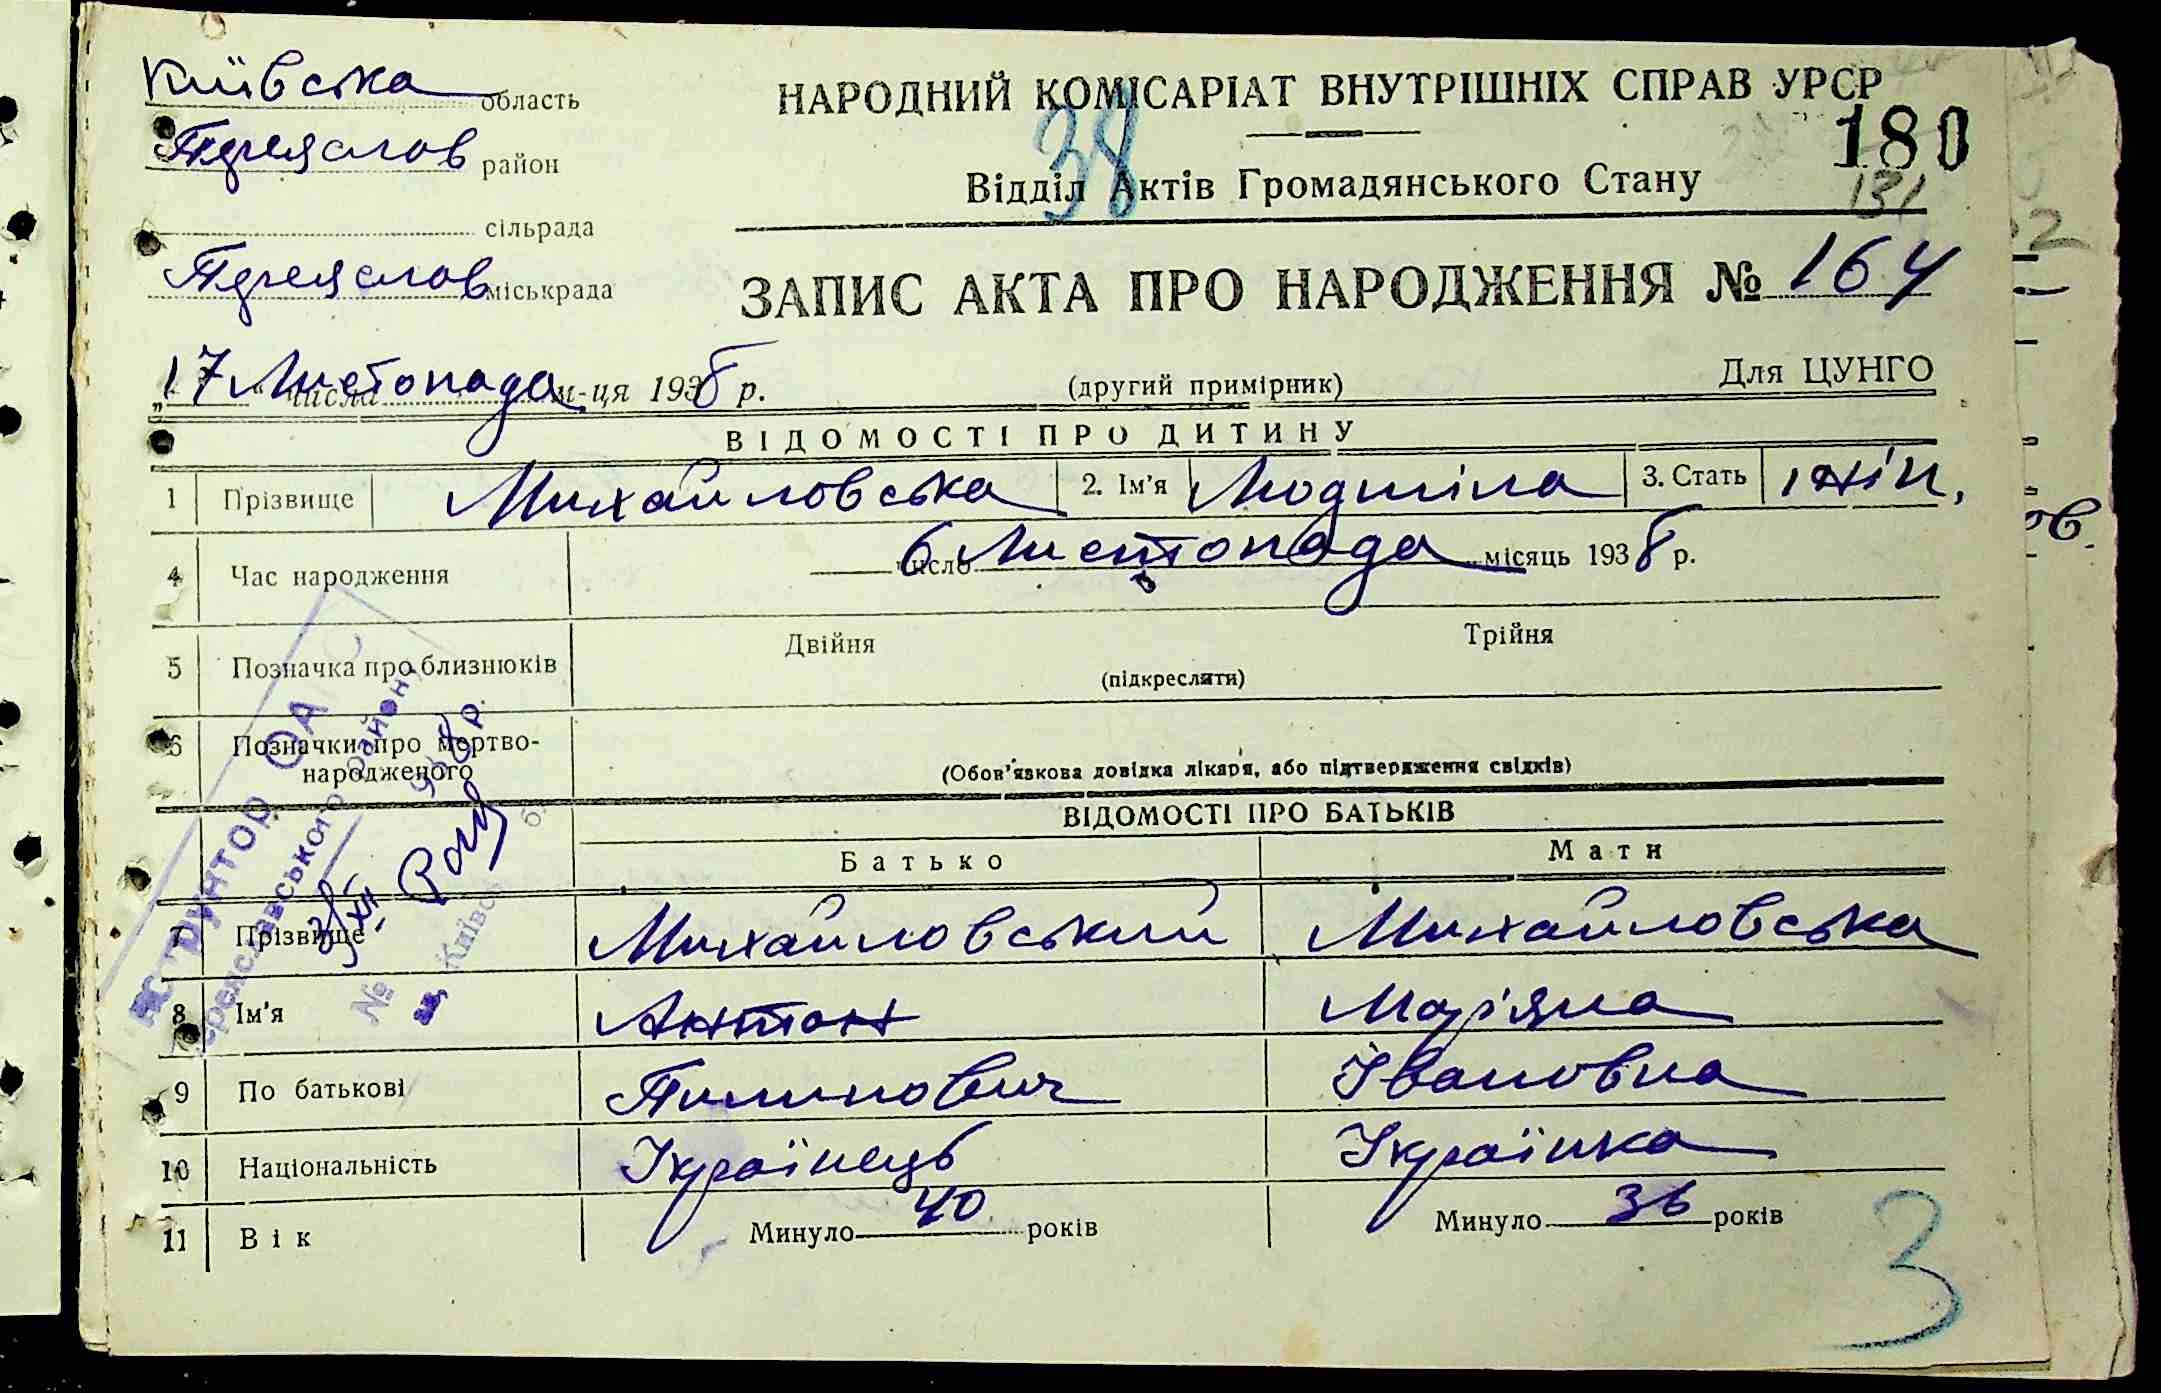 Київська область
Переяслов район
сільрада
Переяслов міськрада
НАРОДНИЙ КОМІСАРІАТ ВНУТРІШНІХ СПРАВ УРСР
38
180
131
Відділ Актів Громадянського Стану
ЗАПИС АКТА ПРО НАРОДЖЕННЯ № 164
„17" числа Листопада м-ця 1938 р.
(другий примірник)
Для ЦУНГО
ВІДОМОСТІ ПРО ДИТИНУ
1 Прізвище Михайловська 2. Ім'я Людміла 3. Стать жін.
4 Час народження 6 число Листопада місяць 1938 р.
5 Позначка про близнюків Двійня Трійня
(підкреслити)
6 Позначки про мертво-
народженого
(Обов'язкова довідка лікаря, або підтвердження свідків)
ВІДОМОСТІ ПРО БАТЬКІВ
Батько Мати
7 Прізвище Михайловський Михайловська
8 Ім'я Антон Мар'яна
9 По батькові Пилипович Івановна
10 Національність Українець Українка
11 Вік Минуло 40 років Минуло 36 років
3